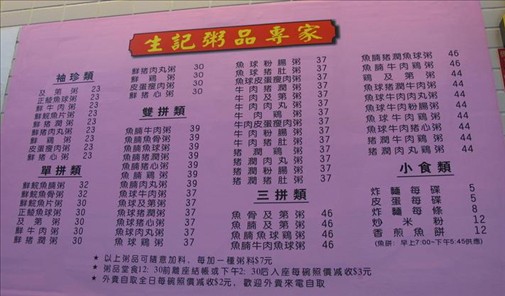 生記粥品專家
袖珍類
及第粥 23
正鯪魚球粥 23
鮮牛肉粥 23
鮮鯇魚片粥 23
鮮豬潤粥 23
鮮豬肉丸粥 23
鮮雞粥 23
皮蛋瘦肉粥 23
鮮豬心粥 23
單拼類
鮮鯇魚腩粥 32
鮮鯇魚骨粥 32
鮮鯇魚片粥 30
正鯪魚球粥 30
及第粥 30
鮮牛肉粥 30
鮮豬潤粥 30
鮮豬肉丸粥 30
鮮鷄粥 30
皮蛋瘦肉粥 30
鮮豬心粥 30
雙拼類
魚腩牛肉粥 39
魚腩魚骨粥 39
魚腩魚球粥 39
魚腩豬潤粥 39
魚腩豬心粥 39
魚腩鷄粥 39
魚腩肉丸粥 39
魚球牛肉粥 37
魚球及第粥 37
魚球豬潤粥 37
魚球肉丸粥 37
魚球鷄粥 37
魚球粉腸粥 37
魚球豬肚粥 37
魚球皮蛋瘦肉粥 37
牛肉豬潤粥 37
牛肉及第粥 37
牛肉肉丸粥 37
牛肉鷄粥 37
牛肉皮蛋瘦肉粥 37
牛肉粉腸粥 37
牛肉豬心粥 37
豬潤鷄粥 37
豬潤肉丸粥 37
豬潤粉腸粥 37
豬潤豬肚粥 37
三拼類
魚骨及第粥 46
魚腩及第粥 46
魚腩魚球鷄粥 46
魚腩牛肉魚球粥 46
魚腩豬潤魚球粥 46
魚腩牛肉鷄粥 46
鷄及第粥 44
魚球牛肉豬潤粥 44
魚球牛肉肉丸粥 44
魚球牛肉粉腸粥 44
魚球牛肉鷄粥 44
魚球牛肉豬心粥 44
豬潤牛肉肉丸粥 44
豬潤牛肉鷄粥 44
小食類
炸麵每碟 5
皮蛋每碟 5
炸麵每條 8
炒米粉 12
香煎魚餅 12
(魚餅: 早上7:00-下午5:45供應)
* 以上粥品可隨意加料, 每加一種料$7元
* 粥品堂食12: 30前離座結帳或下午2: 30后入座每碗照價減收$3元
* 外賣自取全日每碗照價減收$2元, 歡迎外賣來電自取